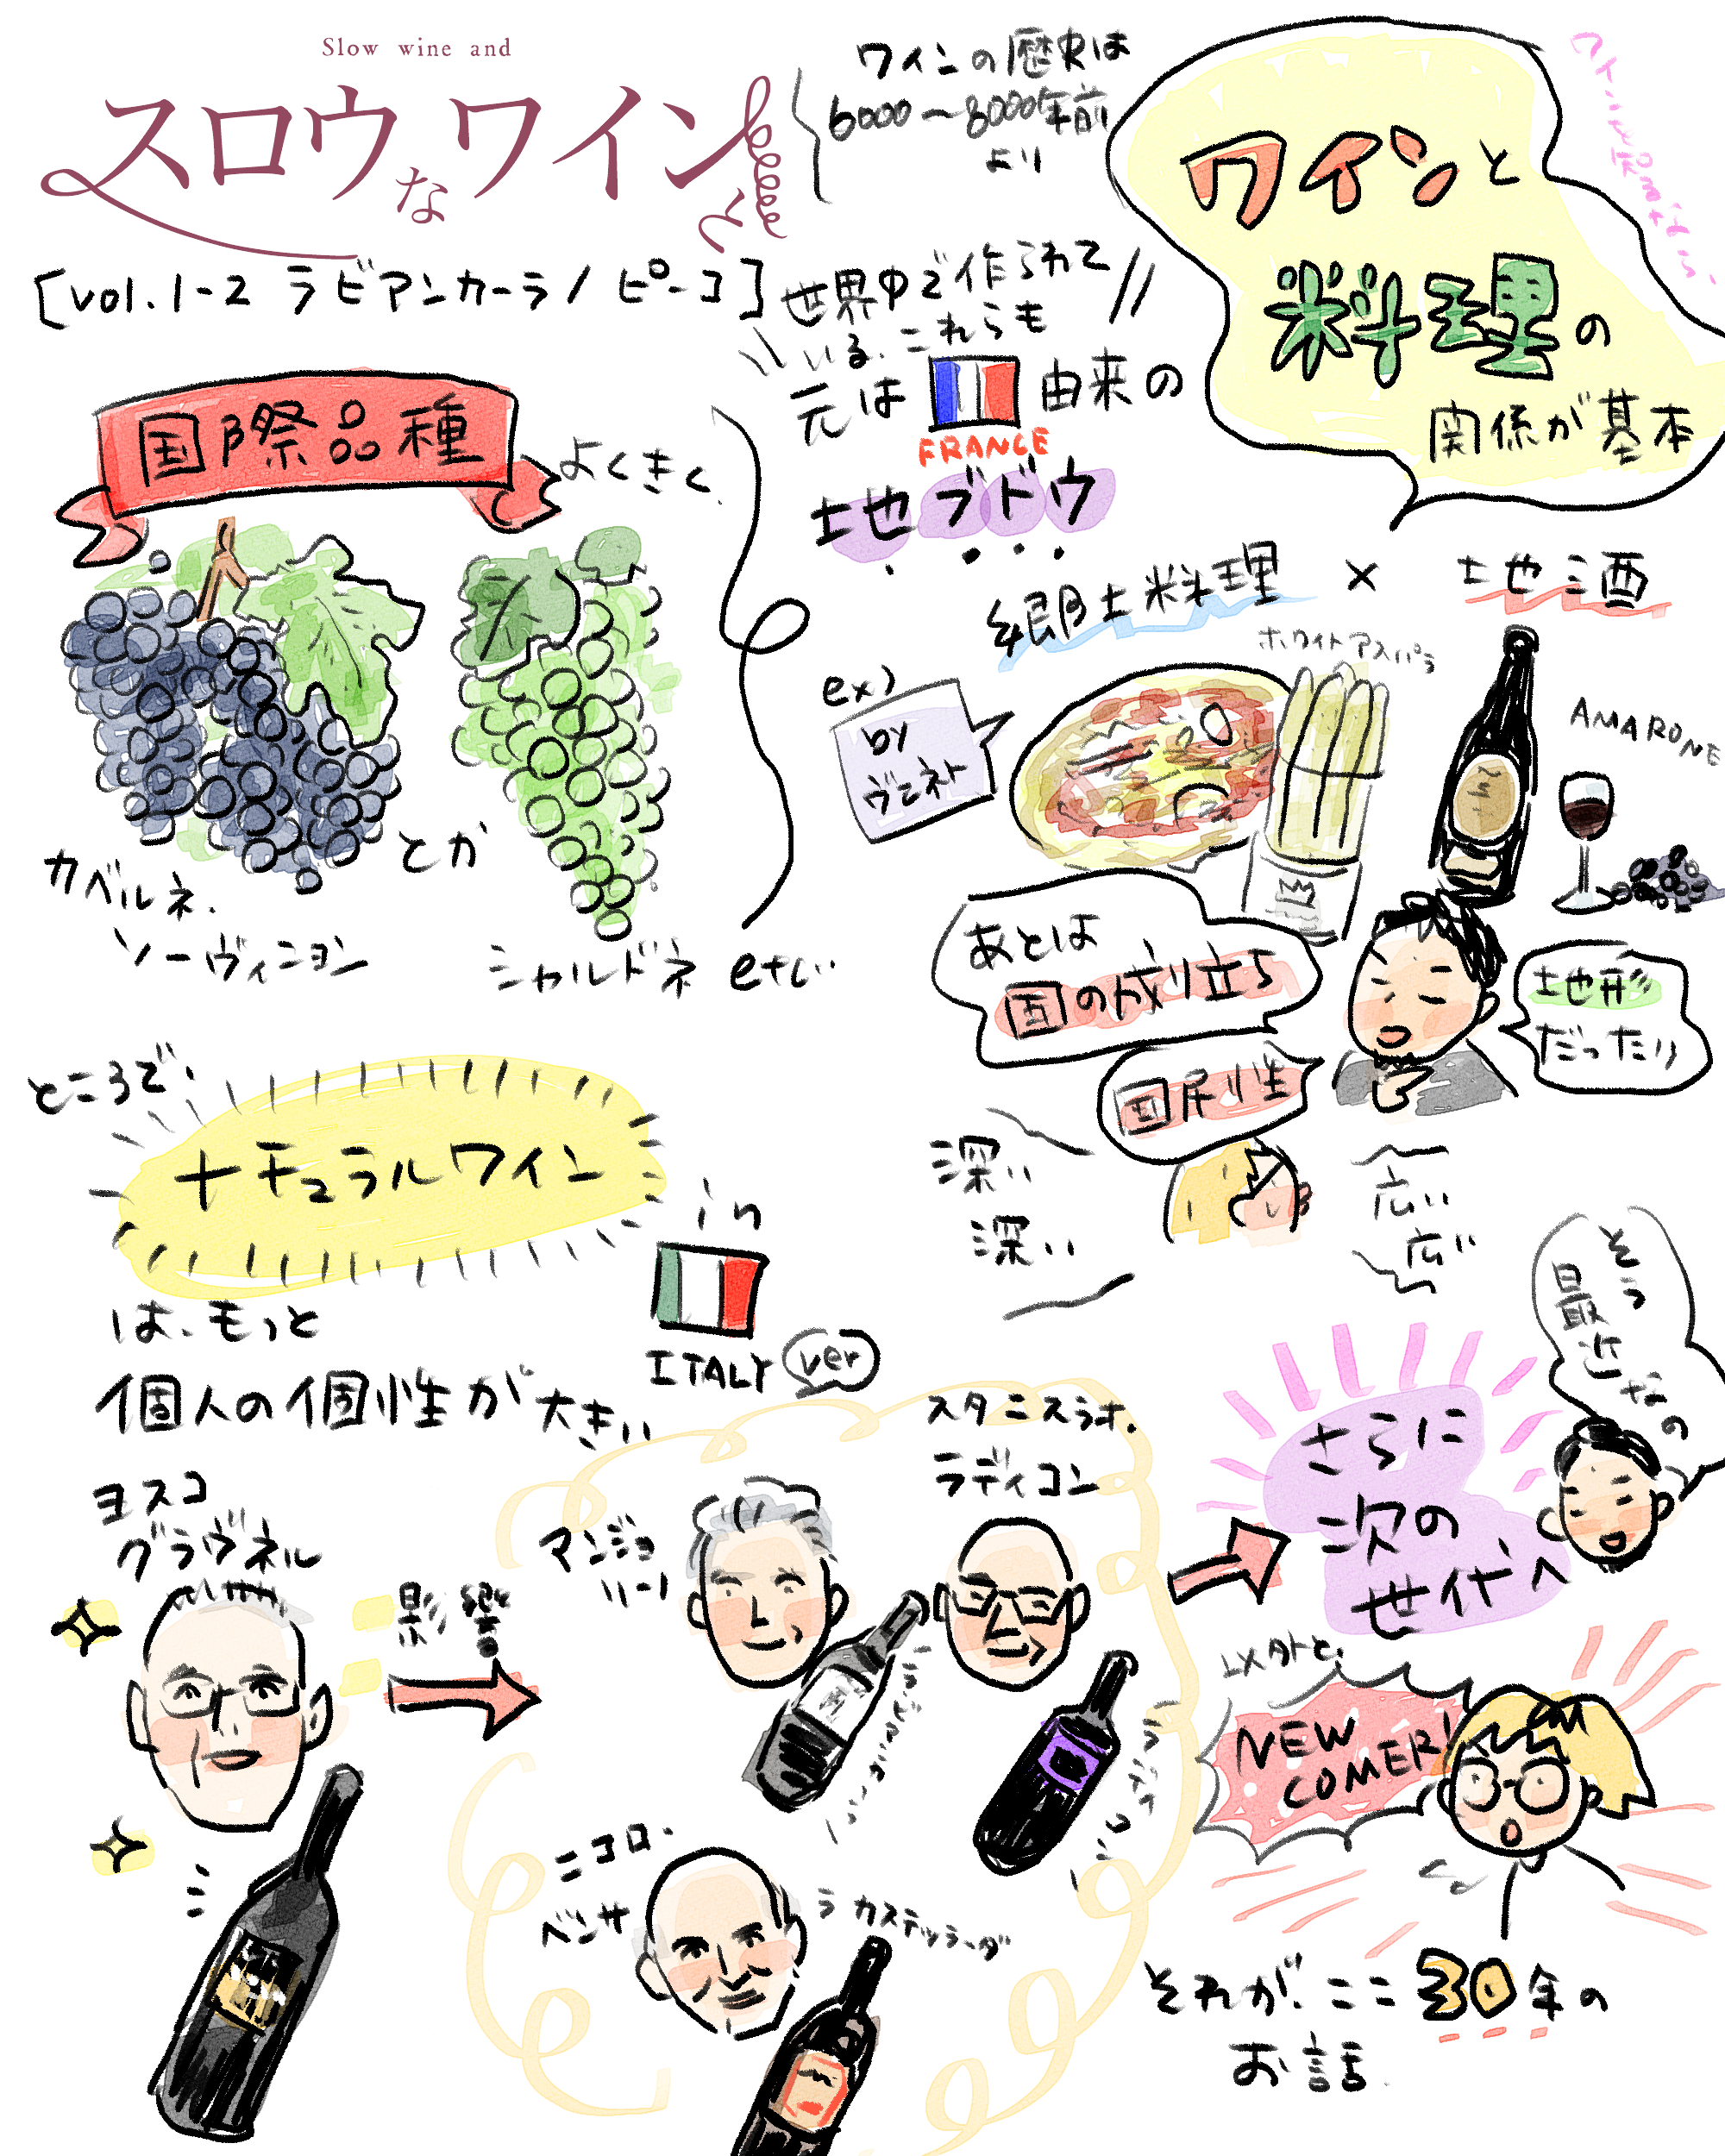 Slow wine and
スロウなワインと
[vol.1-2 ラビアンカーラ/ピーコ]
ワインの歴史は
6000〜8000年前
より
ワインと
料理の
関係が基本
世界中で作られて
いる、これらも
元は
由来の
FRANCE
土地ブドウ
国際品種
よくきく、
カベルネ・
ソーヴィニヨン
とか
シャルドネ etc…
郷土料理 × 土地酒
ex)
by
ヴェネト
ホワイトアスパラ
AMARONE
あとは
国の成り立ち
国民性
地形
だったり
深い
深い
広い
広い
ところで、
ナチュラルワイン
in
ITALY ver
は、もっと
個人の個性が大きい
ヨスコ
グラヴネル
影響
マンジョ
スタニスラオ・
ラディコン
ラディコン
ニコロ・
ベンサ
ラ カステッラーダ
さらに
次の
世代へ
そう
最近なの
NEW
COMER!
それが、ここ30年の
お話